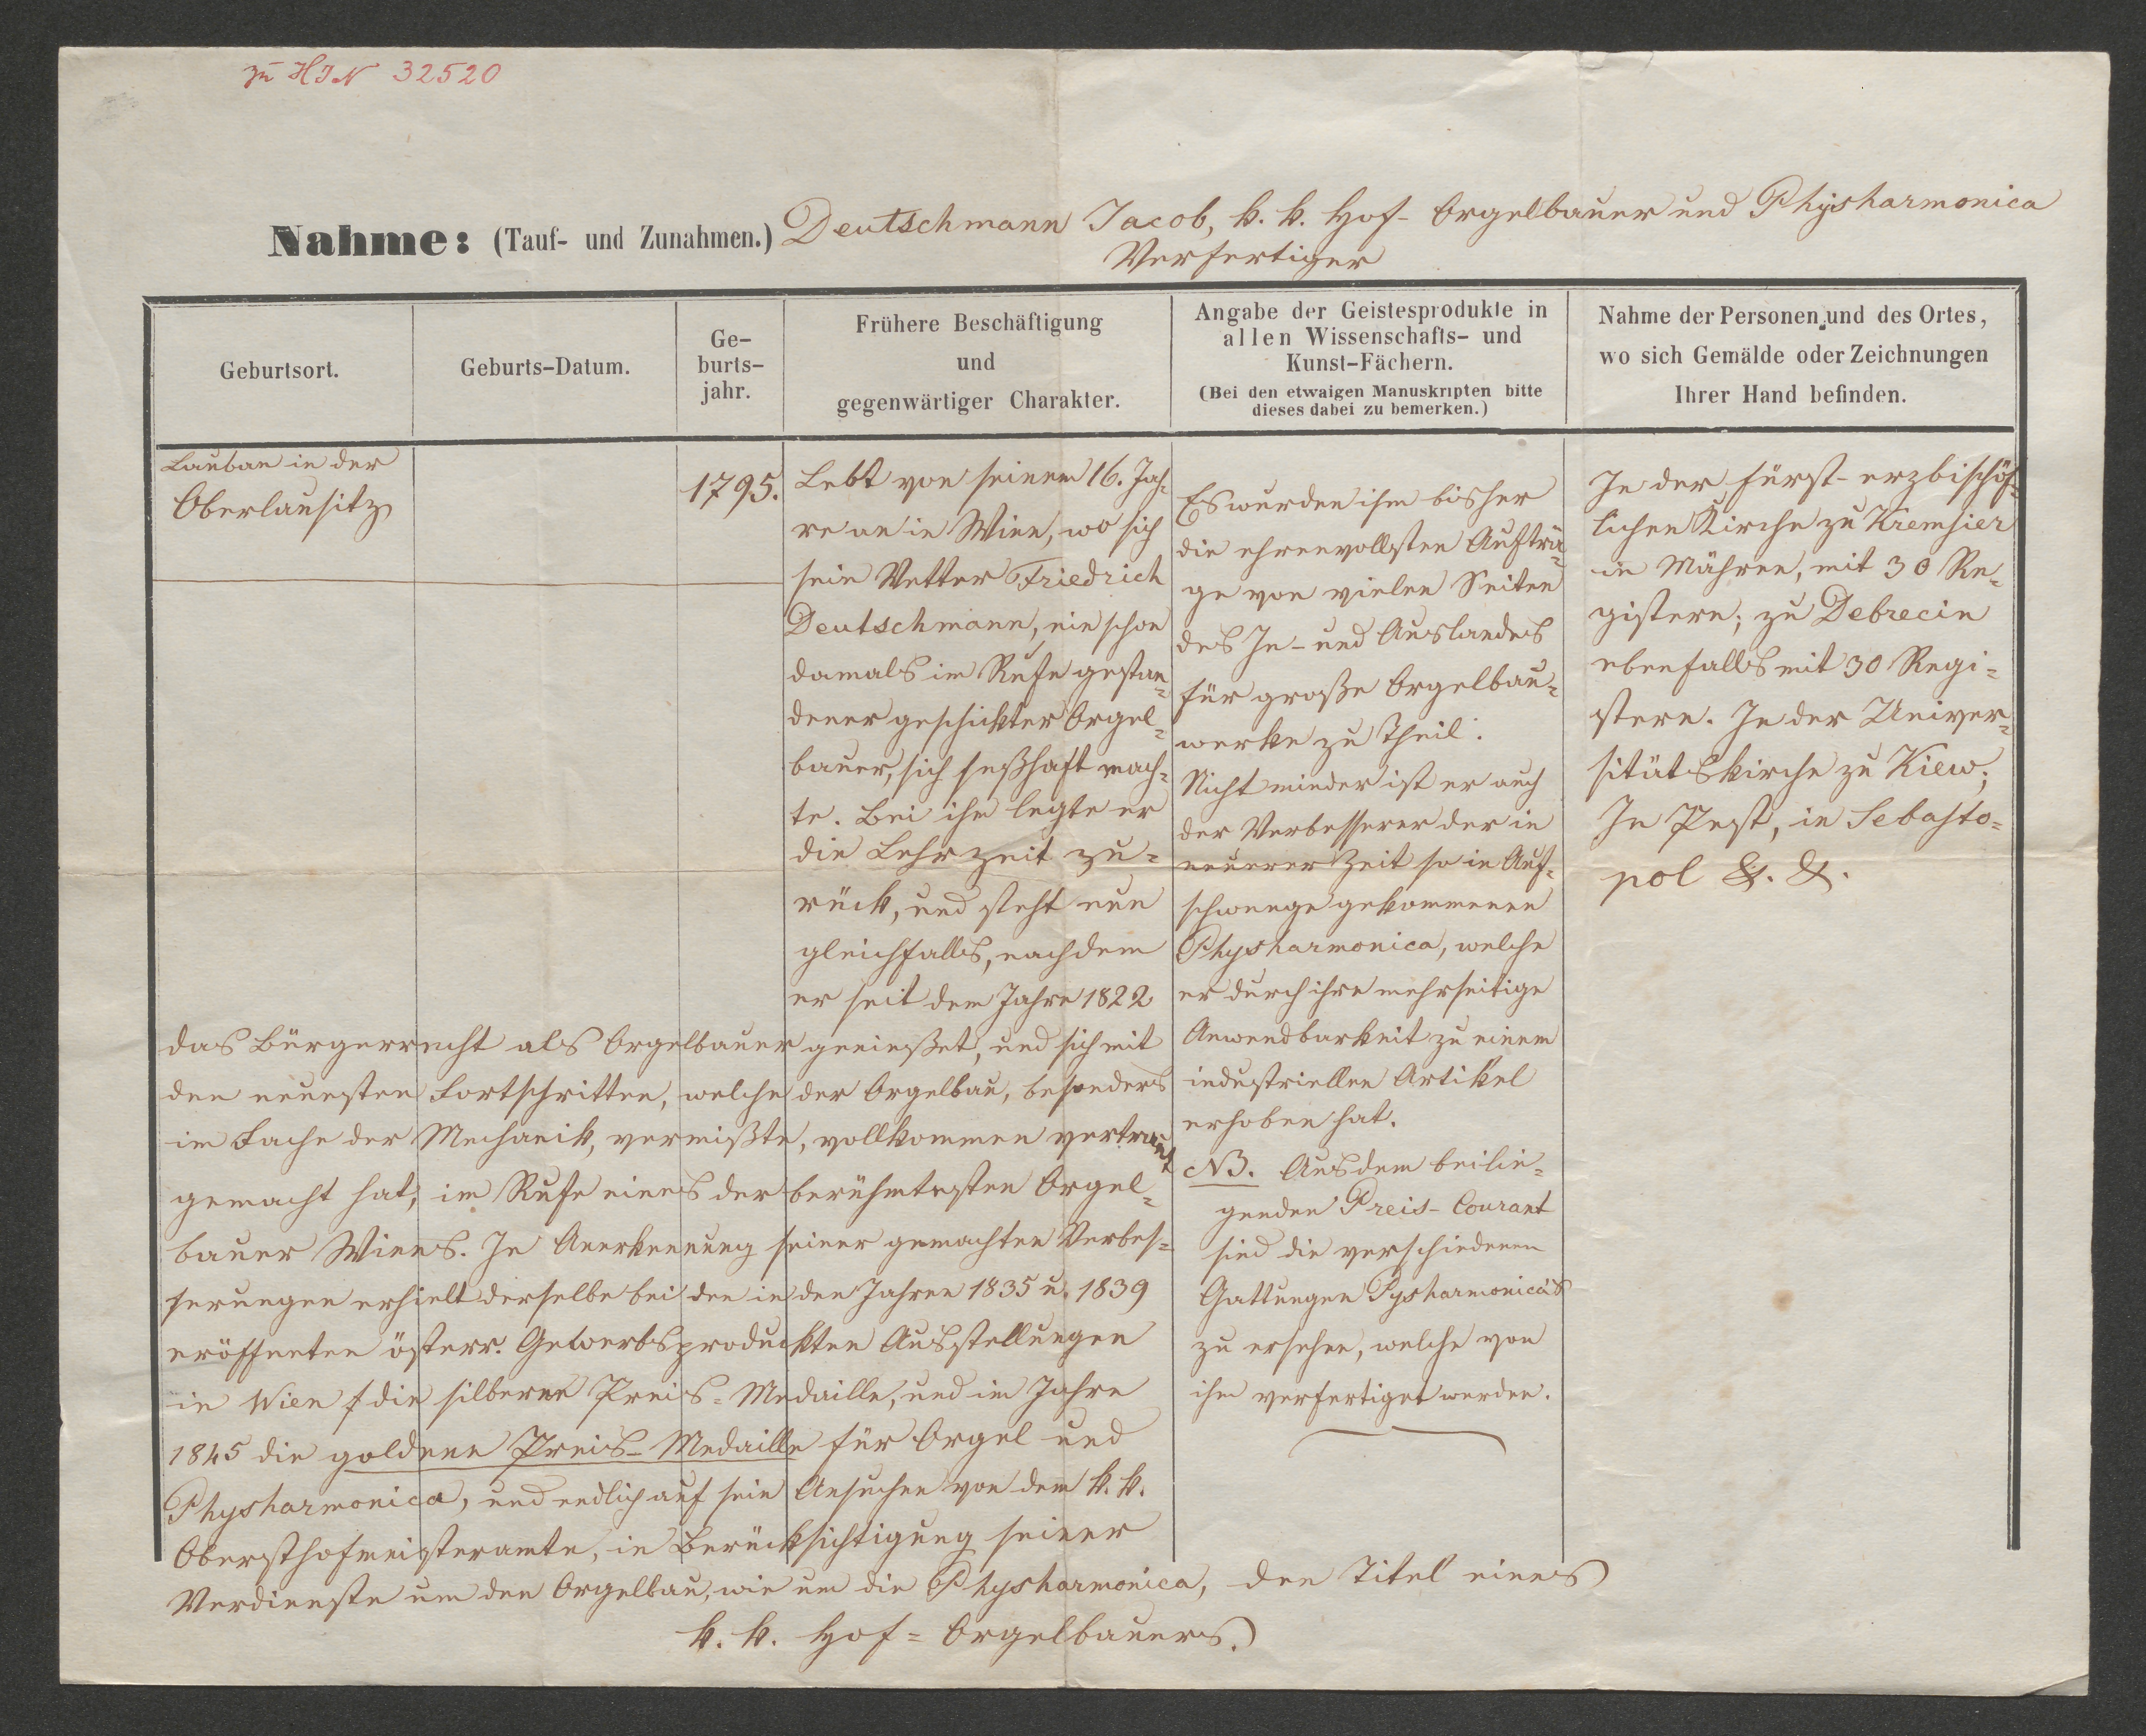 zu HIN 32520
Nahme: (Tauf- und Zunahmen.) Deutschmann Jacob, k. k. Hof- Orgelbauer und Physharmonica
Verfertiger
Geburtsort.
Geburts-Datum.
Ge-
burts-
jahr.
Frühere Beschäftigung
und
gegenwärtiger Charakter.
Angabe der Geistesprodukte in
allen Wissenschafts- und
Kunst-Fächern.
(Bei den etwaigen Manuskripten bitte
dieses dabei zu bemerken.)
Nahme der Personen und des Ortes,
wo sich Gemälde oder Zeichnungen
Ihrer Hand befinden.
Lauban in der
Oberlausitz
1795.
Lebt von seinem 16. Jah-
re an in Wien, wo sich
sein Vetter Friedrich
Deutschmann, ein schon
damals im Rufe gestan-
dener geschickter Orgel-
bauer, sich seßhaft mach-
te. Bei ihm legte er
die Lehrzeit zu-
rück, und steht nun
gleichfalls, nachdem
er seit dem Jahre 1822
das Bürgerrecht als Orgelbauer genießet, und sich mit
den neuesten Fortschritten, welche der Orgelbau, besonders
im Fache der Mechanik, vermißte, vollkommen vertraut
gemacht hat, im Rufe eines der berühmtesten Orgel-
bauer Wiens. In Anerkennung seiner gemachten Verbes-
serungen erhielt derselbe bei den in den Jahren 1835 u. 1839
eröffneten österr. Gewerbsproduckten Ausstellungen
in Wien die silberne Preis-Medaille, und im Jahre
1845 die goldene Preis-Medaille für Orgel und
Physharmonica, und endlich auf sein Ansuchen von dem k. k.
Obersthofmeisteramte, in Berücksichtigung seiner
Verdienste um den Orgelbau, wie um die Physharmonica, den Titel eines
k. k. Hof-Orgelbauers.
Es wurden ihm bisher
die ehrenvollsten Aufträ-
ge von vielen Seiten
des In- und Auslandes
für große Orgelbau-
werke zu Theil.
Nicht minder ist er auch
der Verbesserer der in
neuerer Zeit so in Auf-
schwunge gekommenen
Physharmonica, welche
er durch ihre mehrseitige
Anwendbarkeit zu einem
industriellen Artikel
erhoben hat.
NB. Aus dem beilie-
genden Preis-Courant
sind die verschiedenen
Gattungen Pysharmonica's
zu ersehen, welche von
ihm verfertiget werden.
In der fürst-erzbischöf-
lichen Kirche zu Kremsier
in Mähren, mit 30 Re-
gistern; zu Debrecin
ebenfalls mit 30 Regi-
stern. In der Univer-
sitätskirche zu Kiew;
In Pest, in Sebasto-
pol &. &.